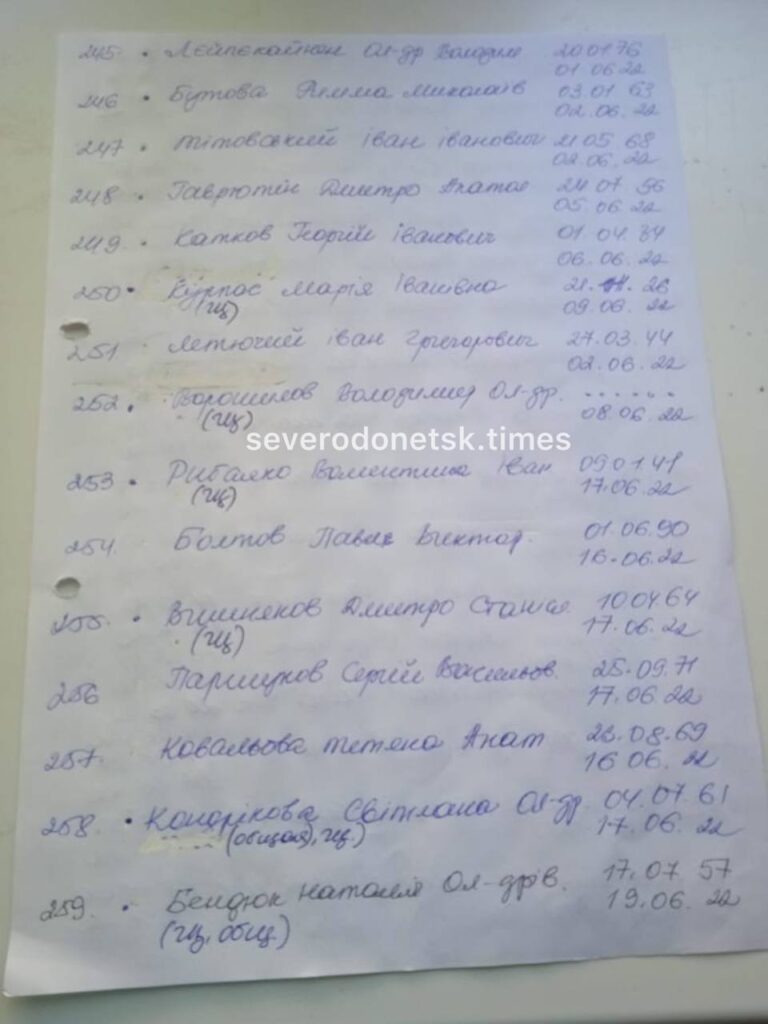 245. Ол-др Володим 20.01.76
01.06.22
246. Бутова Римма Миколаїв 03.01.63
02.06.22
247. Тітовський Іван Іванович 21.05.68
02.06.22
248. Гаврютін Дмитро Анатол 24.07.56
05.06.22
249. Катков Георгій Іванович 01.04.84
06.06.22
250. Курпас Марія Іванівна 21. 26
(гц) 09.06.22
251 Летючий Іван Григорович 27.03.44
02.06.22
252. Ворошилов Володимир Ол-др. ......
(гц) 08.06.22
severodonetsk.times
253. Рибалко Валентина Іван 09.01.41
(гц) 17.06.22
254. Болтов Павел Виктор. 01.06.90
16.06.22
255. Вишняков Дмитро Станісл 10.04.64
(гц) 17.06.22
256 Паршуков Сергій Васильов. 25.09.71
17.06.22
257. Ковальова Тетяна Анат 23.08.69
16.06.22
258. Кондрікова Світлана Ол-др 04.07.61
(общая), гц.) 17.06.22
259. Бендюк Наталія Ол-дрів. 17.07.57
(гц, общ.) 19.06.22